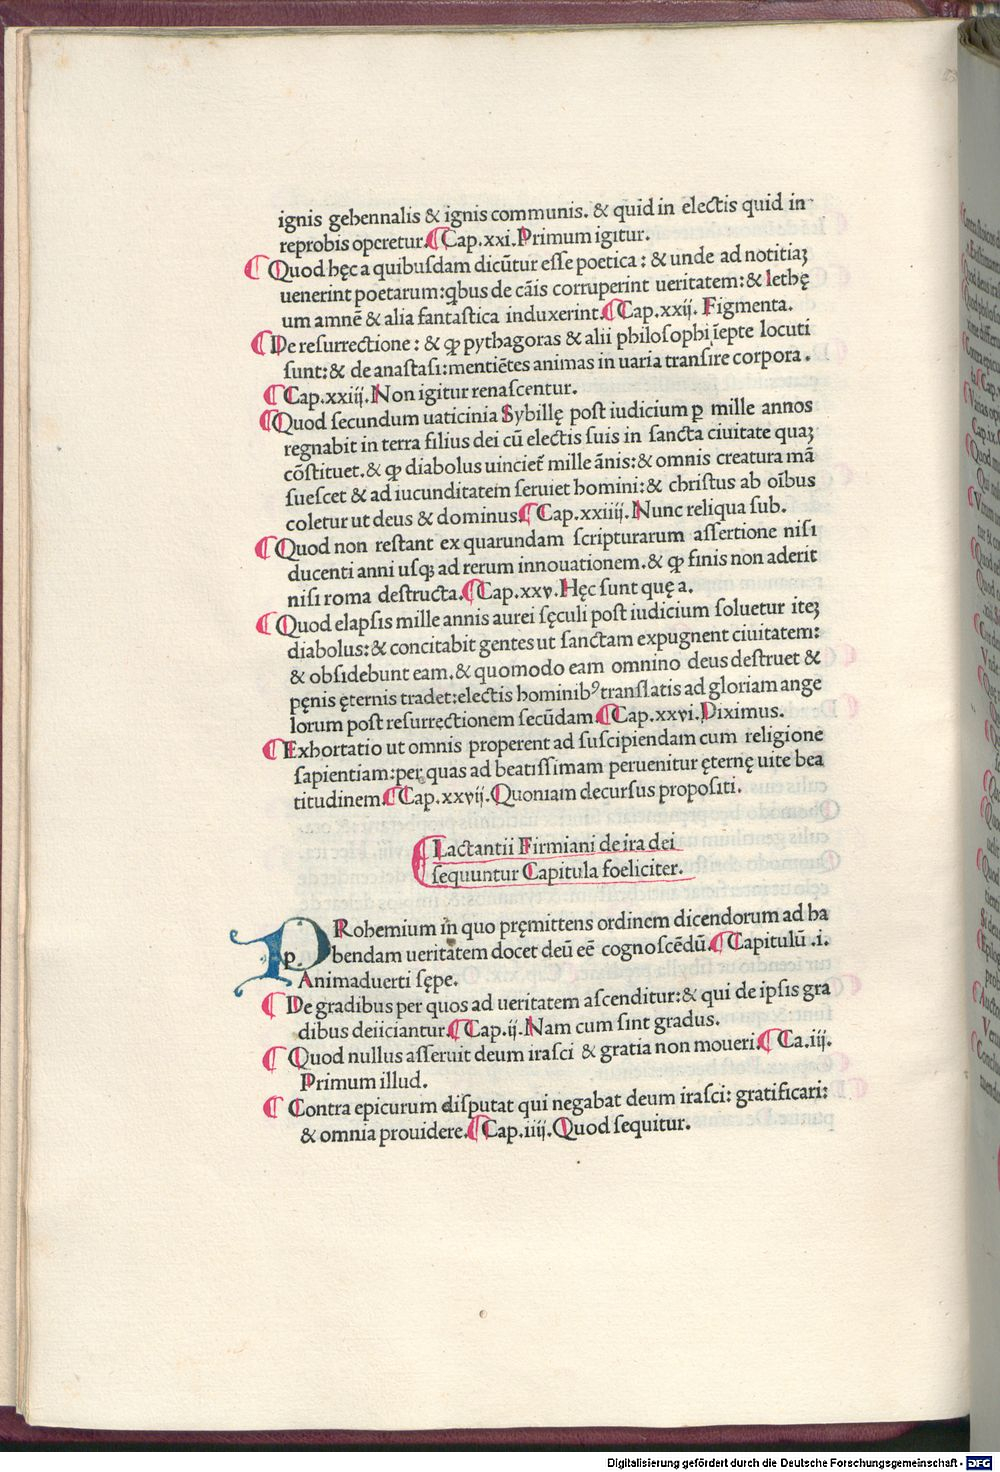 ignis gehennalis & ignis communis. & quid in electis quid in
reprobis operetur. ¶ Cap. xxi. Primum igitur.
¶ Quod hęc a quibusdam dicūtur esse poetica: & unde ad notitiaꝫ
uenerint poetarum: qbus de cāis corruperint ueritatem: & lethę
um amnē & alia fantastica induxerint. ¶ Cap. xxii. Figmenta.
¶ De resurrectione: & ꝙ pythagoras & alii philosophi īepte locuti
sunt: & de anastasi: mentiētes animas in uaria transire corpora.
¶ Cap. xxiii. Non igitur renascentur.
¶ Quod secundum uaticinia Sybillę post iudicium p mille annos
regnabit in terra filius dei cū electis suis in sancta ciuitate quaꝫ
cōstituet. & ꝙ diabolus uinciet᷑ mille ānis: & omnis creatura mā
suescet & ad iucunditatem seruiet homini: & christus ab oībus
coletur ut deus & dominus. ¶ Cap. xxiiii. Nunc reliqua sub.
¶ Quod non restant ex quarundam scripturarum assertione nisi
ducenti anni usqꝫ ad rerum innouationem. & ꝙ finis non aderit
nisi roma destructa. ¶ Cap. xxv. Hęc sunt quę a.
¶ Quod elapsis mille annis aurei sęculi post iudicium soluetur iteꝫ
diabolus: & concitabit gentes ut sanctam expugnent ciuitatem:
& obsidebunt eam. & quomodo eam omnino deus destruet &
pęnis ęternis tradet: electis hominibꝰ translatis ad gloriam ange
lorum post resurrectionem secūdam. ¶ Cap. xxvi. Diximus.
¶ Exhortatio ut omnis properent ad suscipiendam cum religione
sapientiam: per quas ad beatissimam peruenitur ęternę uite bea
titudinem. ¶ Cap. xxvii. Quoniam decursus propositi.
¶ Lactantii Firmiani de ira dei
sequuntur Capitula foeliciter.
p PRohemium in quo pręmittens ordinem dicendorum ad ha
bendam ueritatem docet deū eē cognoscēdū. ¶ Capitulū .i.
Animaduerti sępe.
¶ De gradibus per quos ad ueritatem ascenditur: & qui de ipsis gra
dibus deiiciantur. ¶ Cap. ii. Nam cum sint gradus.
¶ Quod nullus asseruit deum irasci & gratia non moueri. ¶ Ca. iii.
Primum illud.
¶ Contra epicurum disputat qui negabat deum irasci: gratificari:
& omnia prouidere. ¶ Cap. iiii. Quod sequitur.
Digitalisierung gefördert durch die Deutsche Forschungsgemeinschaft - DFG